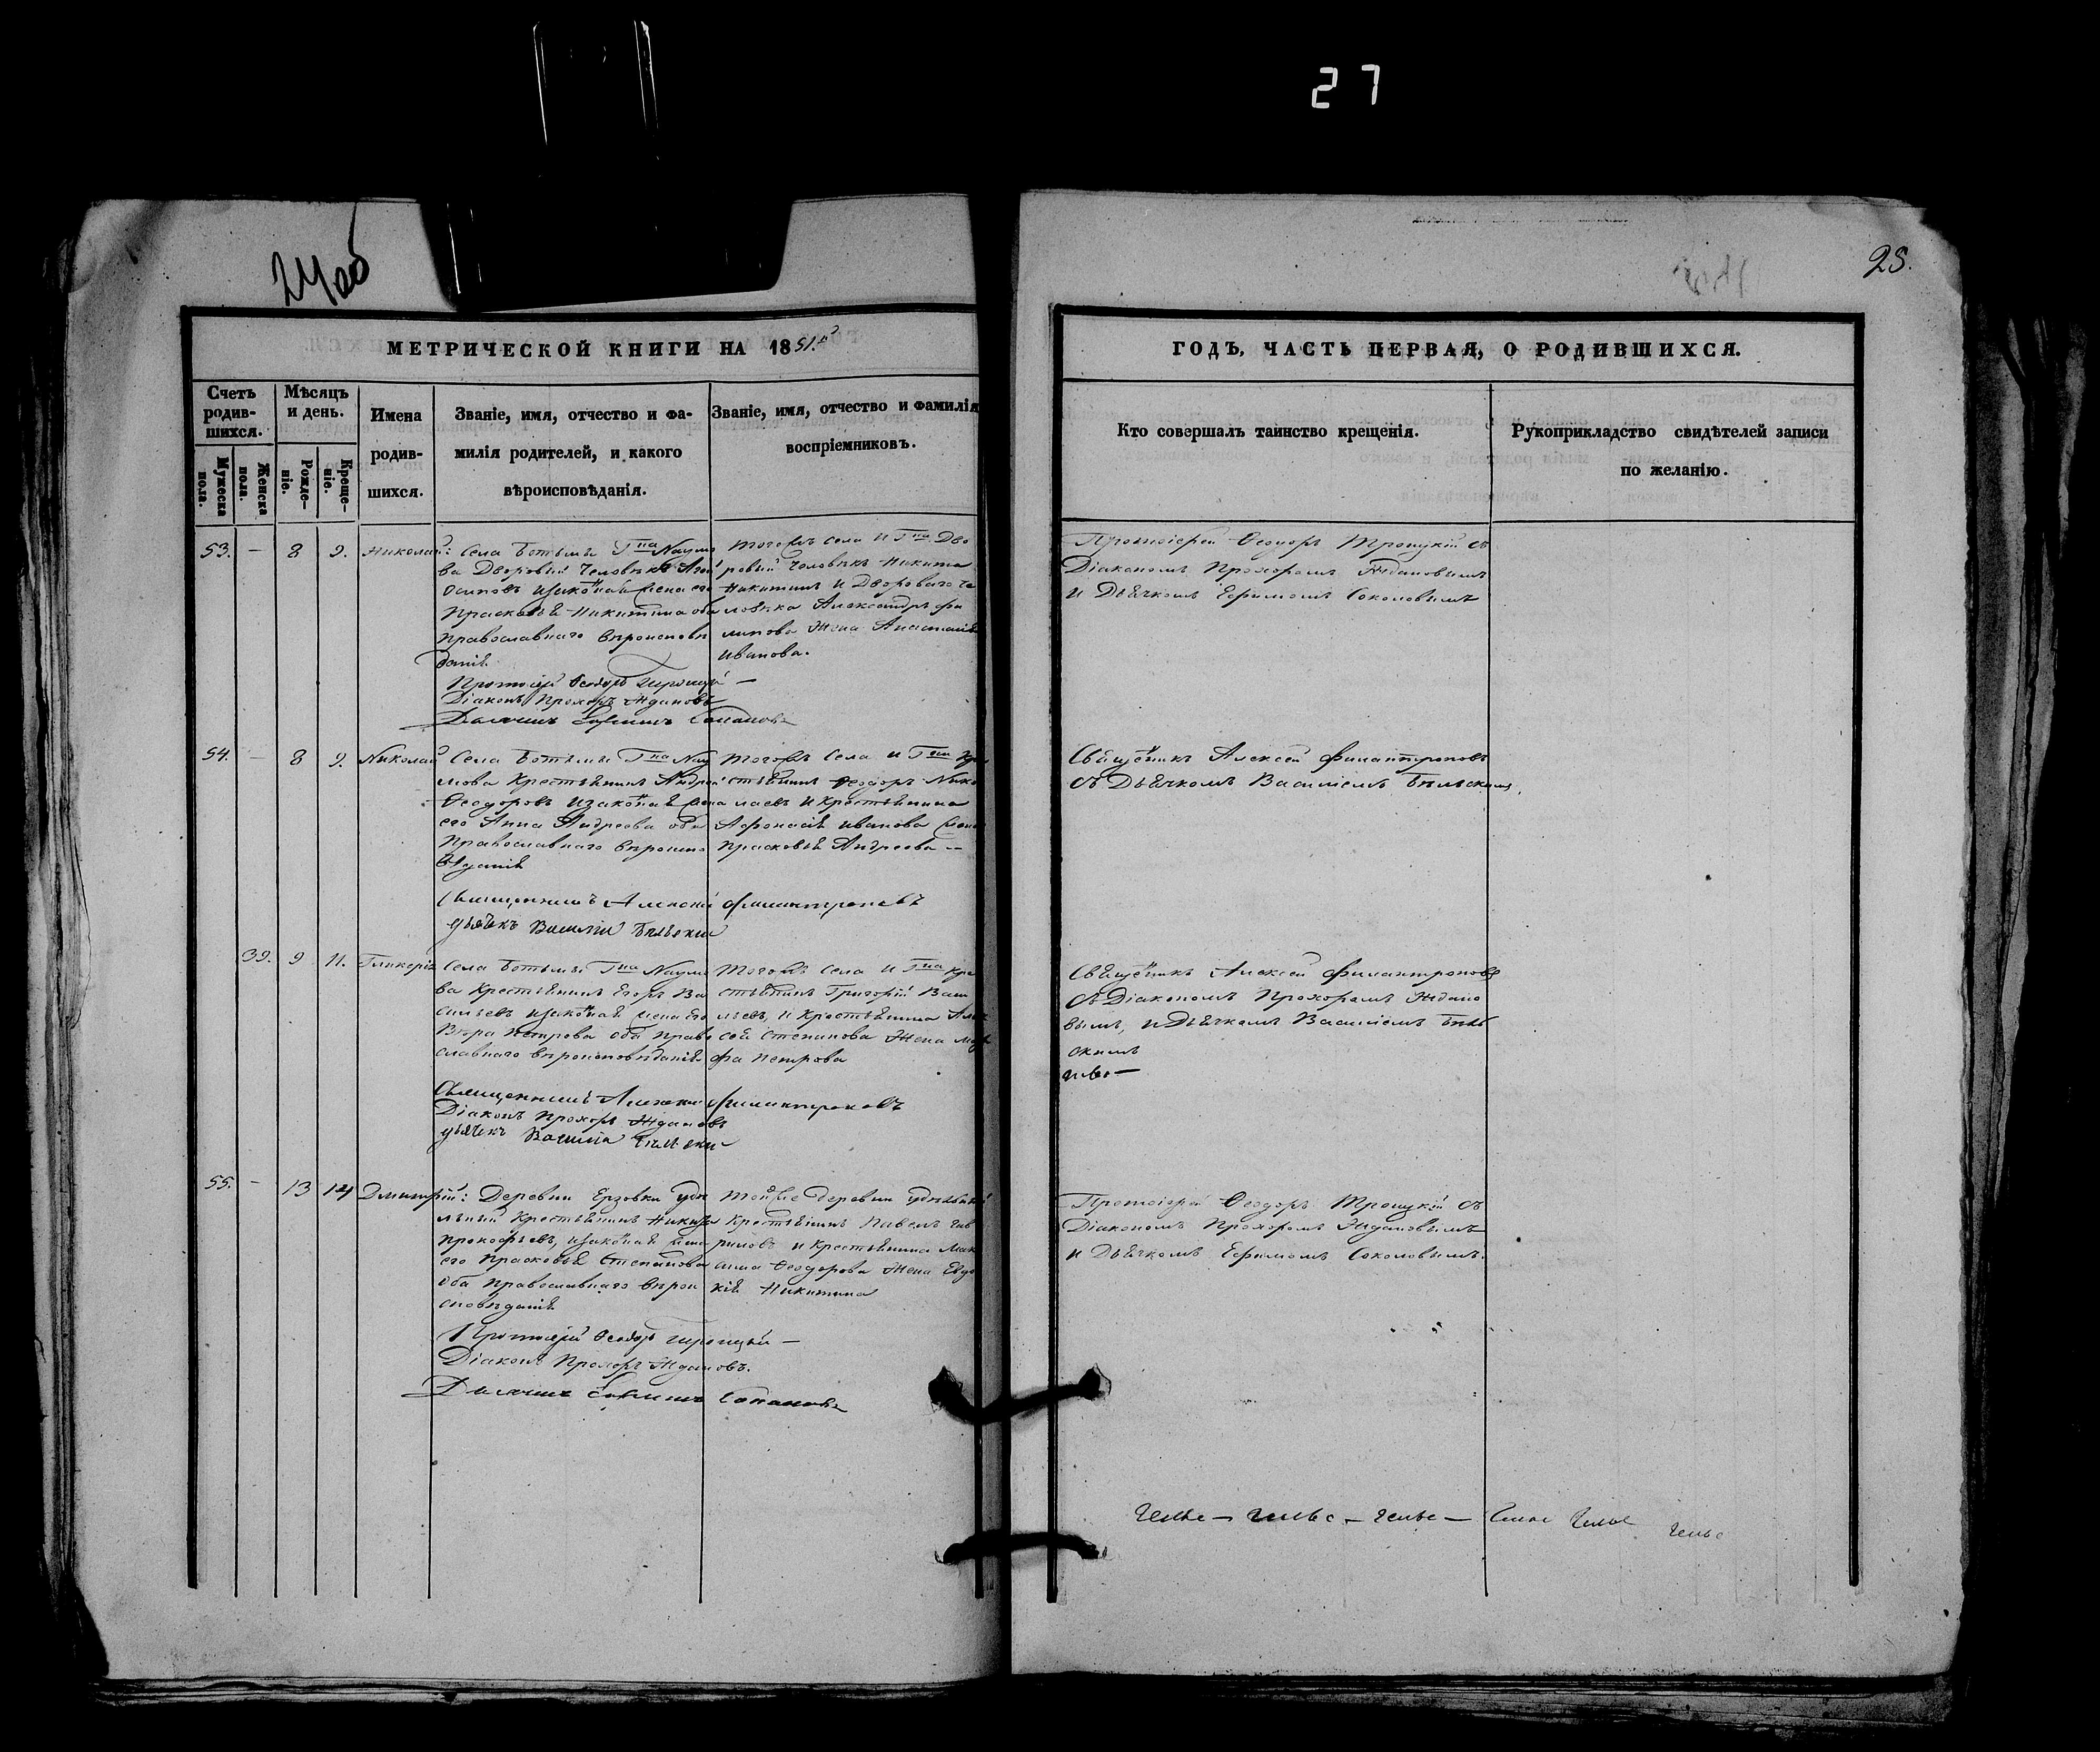 27
24об
25.
МЕТРИЧЕСКОЙ КНИГИ НА 1851й
ГОДЪ, ЧАСТЬ ПЕРВАЯ, О РОДИВШИХСЯ.
Счетъ родив-шихся.
Мужеска пола.
Женска пола.
Мѣсяцъ и день.
Рожде-ніе.
Креще-ніе.
Имена родив-шихся.
Званіе, имя, отчество и фа-
милія родителей, и какого
вѣроисповѣданія.
Званіе, имя, отчество и фамилія
воспріемниковъ.
Кто совершалъ таинство крещенія.
Рукоприкладство свидѣтелей записи
по желанію.
53. — 8 9. Николай:
Села Ботьмы Гна Наумо
ва Дворовый человѣкъ
Осиповъ изаконая жена его
Прасковья Никитина оба
Православнаго вѣроисповѣ
данія
Протоіерей Ѳеодоръ Троицкій —
Діаконъ Прохоръ Ждановъ
Дьячекъ Ефимъ Соколовъ
Тогожъ села и Гна Дво
ровый человѣкъ Никита
Никитинъ и Двороваго че
ловѣка Александра Фи
липова Жена Анастасія
Иванова.
Протоіерей Ѳеодоръ Троицкій съ
Діакономъ Прохоромъ Ждановымъ
и Дьячкомъ Ефимомъ Соколовымъ
54. — 8 9. Николай
Села Ботьмы Гна Нау
мова Крестьянинъ Андрей
Ѳеодоровъ изаконая жена
его Анна Андреева оба
Православнаго вѣроиспо
вѣданія
Священникъ Алексей Филантроповъ
дьячекъ Василій Бѣльскій
Тогожъ села и Гна Кре
стьянинъ Ѳеодоръ Нико
лаевъ и Крестьянина
Афонасія Иванова жена
Прасковья Андреева —
Священикъ Алексей Филантроповъ
съ Дьячкомъ Василіемъ Бѣльскимъ.
39. 9 11. Гликерія
Села Ботьмы Гна Наумо
ва Крестьянинъ Егоръ Ва
сильевъ изаконая жена его
Вѣра Петрова оба Право
славнаго вѣроисповѣданія
Священникъ Алексей Филантроповъ
Діаконъ Прохоръ Ждановъ
дьячекъ Василій Бѣльскій
Тогожъ села и Гна Кре
стьянинъ Григорій Васи
льевъ, и Крестьянина Алек
сея Степанова Жена Мар
фа Петрова
Священикъ Алексей Филантроповъ
съ Діакономъ Прохоромъ Ждано
вымъ, и Дьячкомъ Василіемъ Бѣль
скимъ
55. — 13 14 Димитрій:
Деревни Ерзовки удѣ
льный Крестьянинъ
Прокофьевъ, изаконая жена
его Прасковья Степанова
оба Православнаго вѣрои
сповѣданія
Протоіерей Ѳеодоръ Троицкій —
Діаконъ Прохоръ Ждановъ.
Дьячекъ Ефимъ Соколовъ
Тойже деревни удѣльный
Крестьянинъ Павелъ Гав
риловъ и Крестьянина Мак
сима Ѳеодорова Жена Евдо
кія Никитина
Протоіерей Ѳеодоръ Троицкій съ
Діакономъ Прохоромъ Ждановымъ
и Дьячкомъ Ефимомъ Соколовымъ.